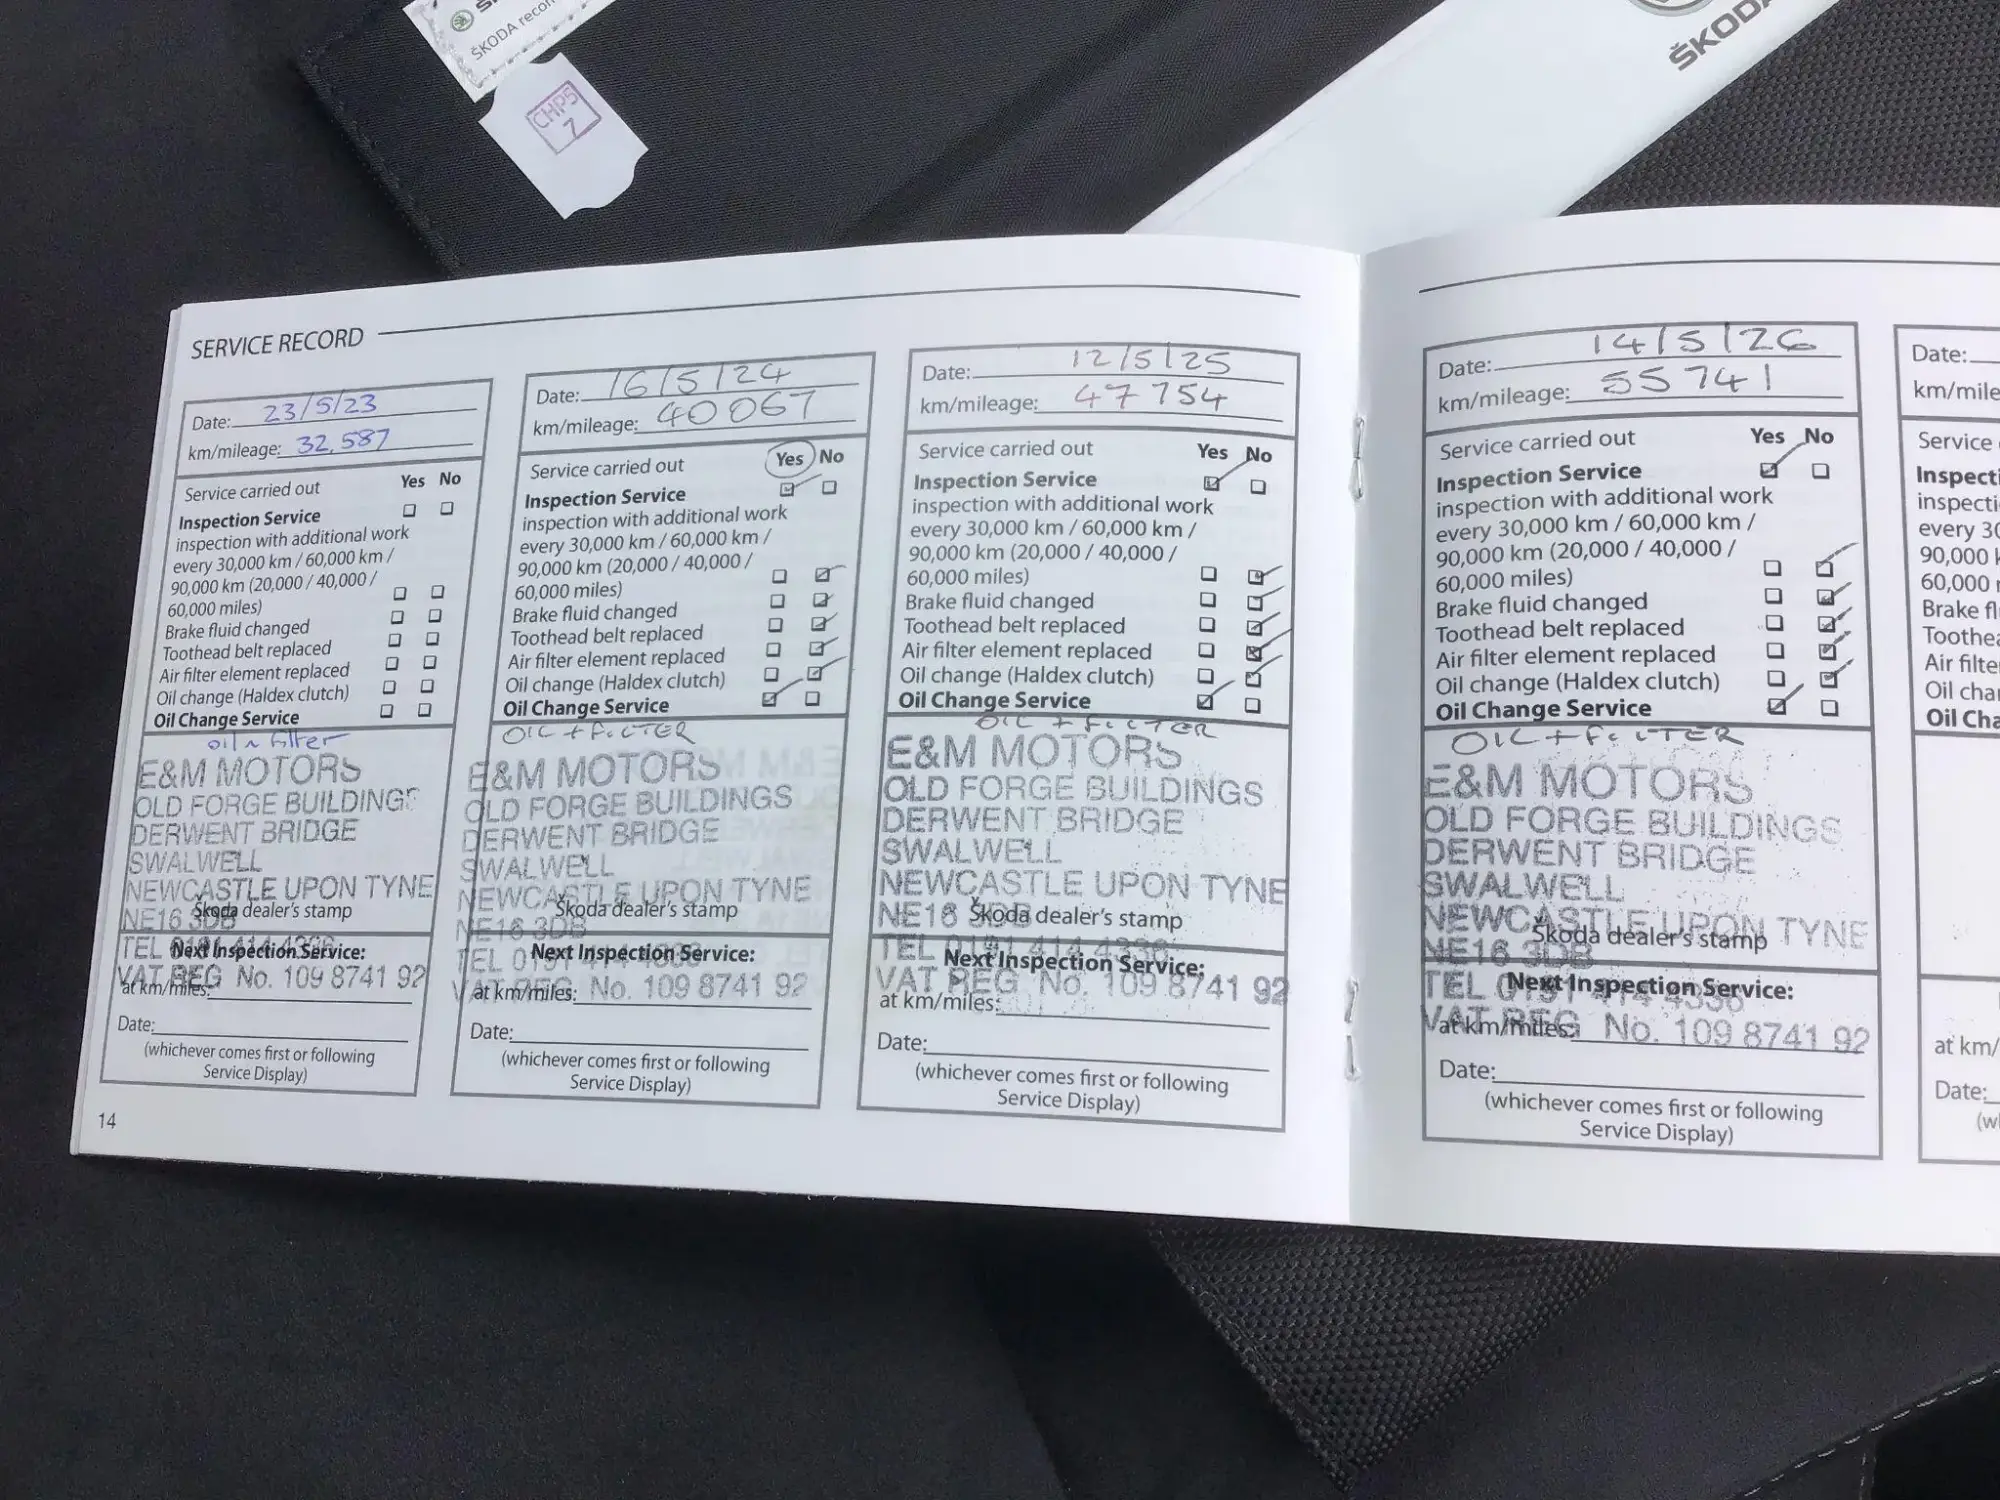 ŠKODA
CHPS
7
ŠKODA
SERVICE RECORD
Date: 23/5/23
km/mileage: 32,587
Service carried out Yes No
Inspection Service
inspection with additional work
every 30,000 km / 60,000 km /
90,000 km (20,000 / 40,000 /
60,000 miles)
Brake fluid changed
Toothead belt replaced
Air filter element replaced
Oil change (Haldex clutch)
Oil Change Service
oil ~ filter
E&M MOTORS
OLD FORGE BUILDINGS
DERWENT BRIDGE
SWALWELL
NEWCASTLE UPON TYNE
NE16 3DB
Škoda dealer's stamp
TEL 0191 414 4336
Next Inspection Service:
VAT REG No. 109 8741 92
at km/miles:
Date:
(whichever comes first or following
Service Display)
14
Date: 16/5/24
km/mileage: 40067
Service carried out Yes No
Inspection Service
inspection with additional work
every 30,000 km / 60,000 km /
90,000 km (20,000 / 40,000 /
60,000 miles)
Brake fluid changed
Toothead belt replaced
Air filter element replaced
Oil change (Haldex clutch)
Oil Change Service
OIL + FILTER
E&M MOTORS
OLD FORGE BUILDINGS
DERWENT BRIDGE
SWALWELL
NEWCASTLE UPON TYNE
NE16 3DB
Škoda dealer's stamp
TEL 0191 414 4336
Next Inspection Service:
VAT REG No. 109 8741 92
at km/miles:
Date:
(whichever comes first or following
Service Display)
Date: 12/5/25
km/mileage: 47754
Service carried out Yes No
Inspection Service
inspection with additional work
every 30,000 km / 60,000 km /
90,000 km (20,000 / 40,000 /
60,000 miles)
Brake fluid changed
Toothead belt replaced
Air filter element replaced
Oil change (Haldex clutch)
Oil Change Service
OIL + FILTER
E&M MOTORS
OLD FORGE BUILDINGS
DERWENT BRIDGE
SWALWELL
NEWCASTLE UPON TYNE
NE16 3DB
Škoda dealer's stamp
TEL 0191 414 4336
Next Inspection Service:
VAT REG No. 109 8741 92
at km/miles:
Date:
(whichever comes first or following
Service Display)
Date: 14/5/26
km/mileage: 55741
Service carried out Yes No
Inspection Service
inspection with additional work
every 30,000 km / 60,000 km /
90,000 km (20,000 / 40,000 /
60,000 miles)
Brake fluid changed
Toothead belt replaced
Air filter element replaced
Oil change (Haldex clutch)
Oil Change Service
OIL + FILTER
E&M MOTORS
OLD FORGE BUILDINGS
DERWENT BRIDGE
SWALWELL
NEWCASTLE UPON TYNE
NE16 3DB
Škoda dealer's stamp
TEL 0191 414 4336
Next Inspection Service:
VAT REG No. 109 8741 92
at km/miles:
Date:
(whichever comes first or following
Service Display)
Date:
km/mile
Service
Inspecti
inspecti
every 30
90,000 k
60,000
Brake fl
Toothea
Air filte
Oil cha
Oil Cha
at km/
Date:
(w